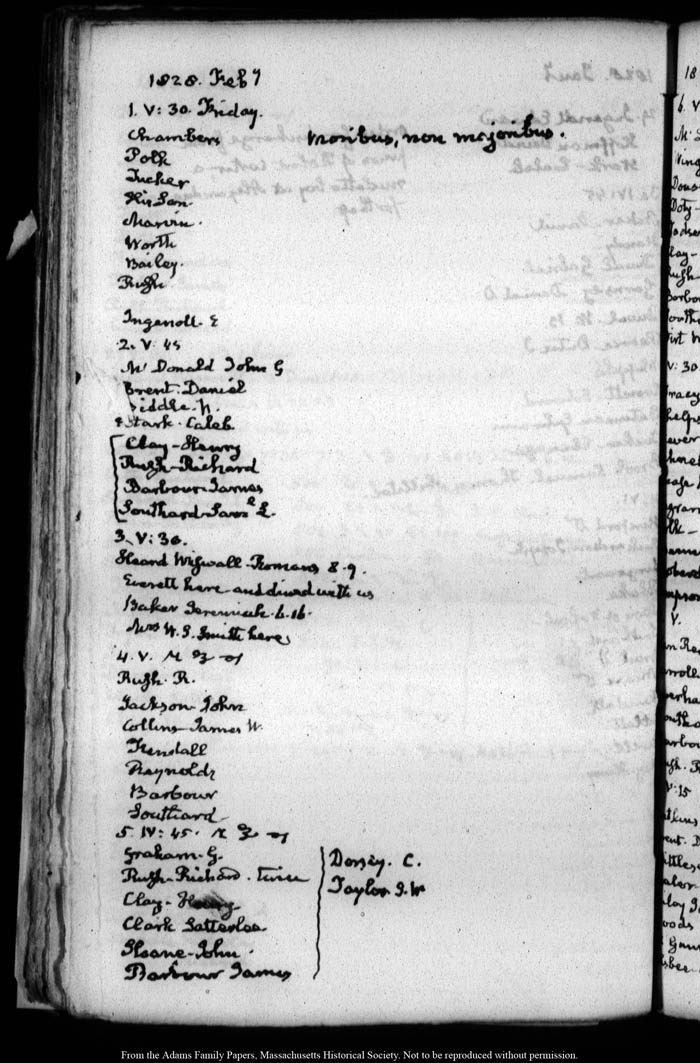 1828. Feby
1. V: 30. Friday.
Chambers moribus, non majoribus.
Polk
Tucker
His Son.
Marvin.
Worth
Bailey
Rush
Ingersoll. E
2. V: 45
McDonald John G
Brent. Daniel
Biddle. N.
Stark. Caleb
Clay-Henry
Rush-Richard
Barbour-James
Southard-Saml. L.
3. V: 30.
Heard Wigwall-Romans 8.9.
Everett here and dined with us
Baker Jeremiah. 6.16.
Mrs W. S. Smith here
4. V.
Rush. R.
Jackson-John
Collins-James W.
Kendall
Reynolds
Barbour
Southard
5. IV: 45.
Graham-G. Dorsey. C.
Rush-Richard. twice Taylor J. W
Clay-Henry
Clark Satterlee
Sloane-John.
Barbour James
From the Adams Family Papers, Massachusetts Historical Society. Not to be reproduced without permission.